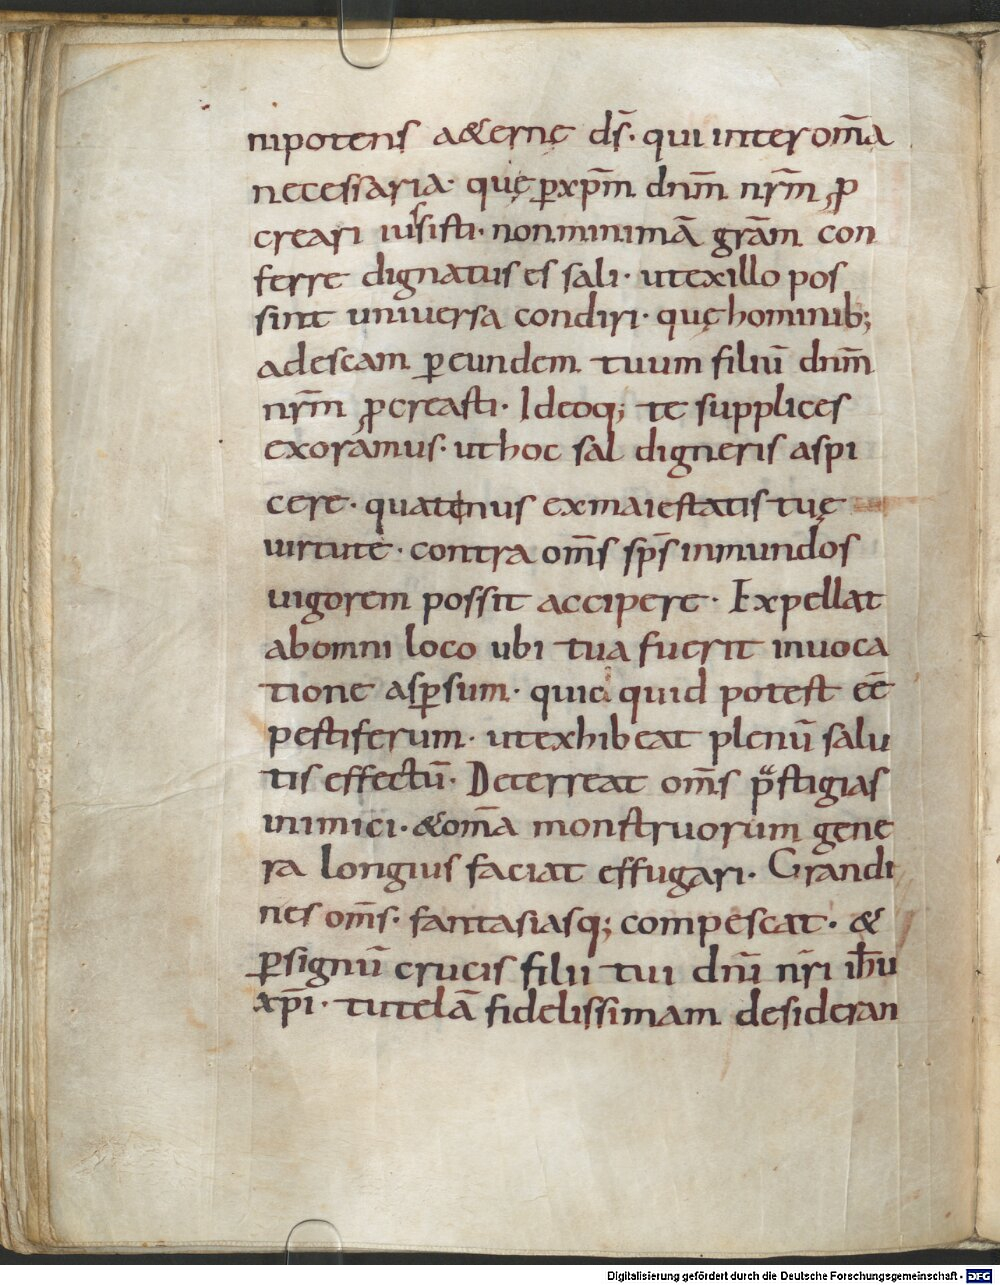 nipotens a&ernę ds̄· qui inter om̄a
necessaria· quę ꝑ xp̄m dn̄m nr̄m ꝓ
creari iussisti· non minimā grām con
ferre dignatus es sali· ut ex illo pos
sint universa condiri· quę hominib;
ad escam ꝑ eundem tuum filiū dn̄m
nr̄m ꝓcreasti· Ideoq; te supplices
exoramus· ut hoc sal digneris aspi
cere· quatenus ex maiestatis tuę
uirtute· contra om̄s sp̄s inmundos
uigorem possit accipere· Expellat
ab omni loco ubi tua fuerit inuoca
tione asꝑsum· quicquid potest eē
pestiferum· ut exhibeat plenū salu
tis effectū· Deterreat om̄s p̄stigias
inimici· & om̄a monstruorum gene
ra longius faciat effugari· Grandi
nes om̄s· fantasiasq; compescat· &
ꝑ signū crucis filii tui dn̄i nr̄i ih̄u
xp̄i· tutelā fidelissimam desideran
Digitalisierung gefördert durch die Deutsche Forschungsgemeinschaft - DFG